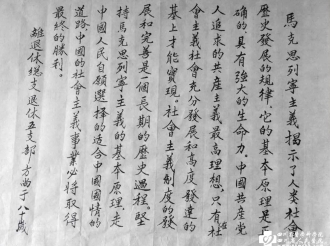 馬克思列寧主義揭示了人类社
歷史發展的規律，它的基本原理是正
确的具有強大的生命力。中國共産党
人追求的共産主義最高理想，只有在
義社會充分發展和高度發達的
基上才能實現。社會主義制度的發
展和完善是一個長期的歷史過程。堅
持馬克思列寧主義的基本原理，走
中國人民自願選擇的适合中國國情的
道路，中國的社會主義事業必將取得
最終的勝利。
雄退休總支退休五支部 方西于 八十歲